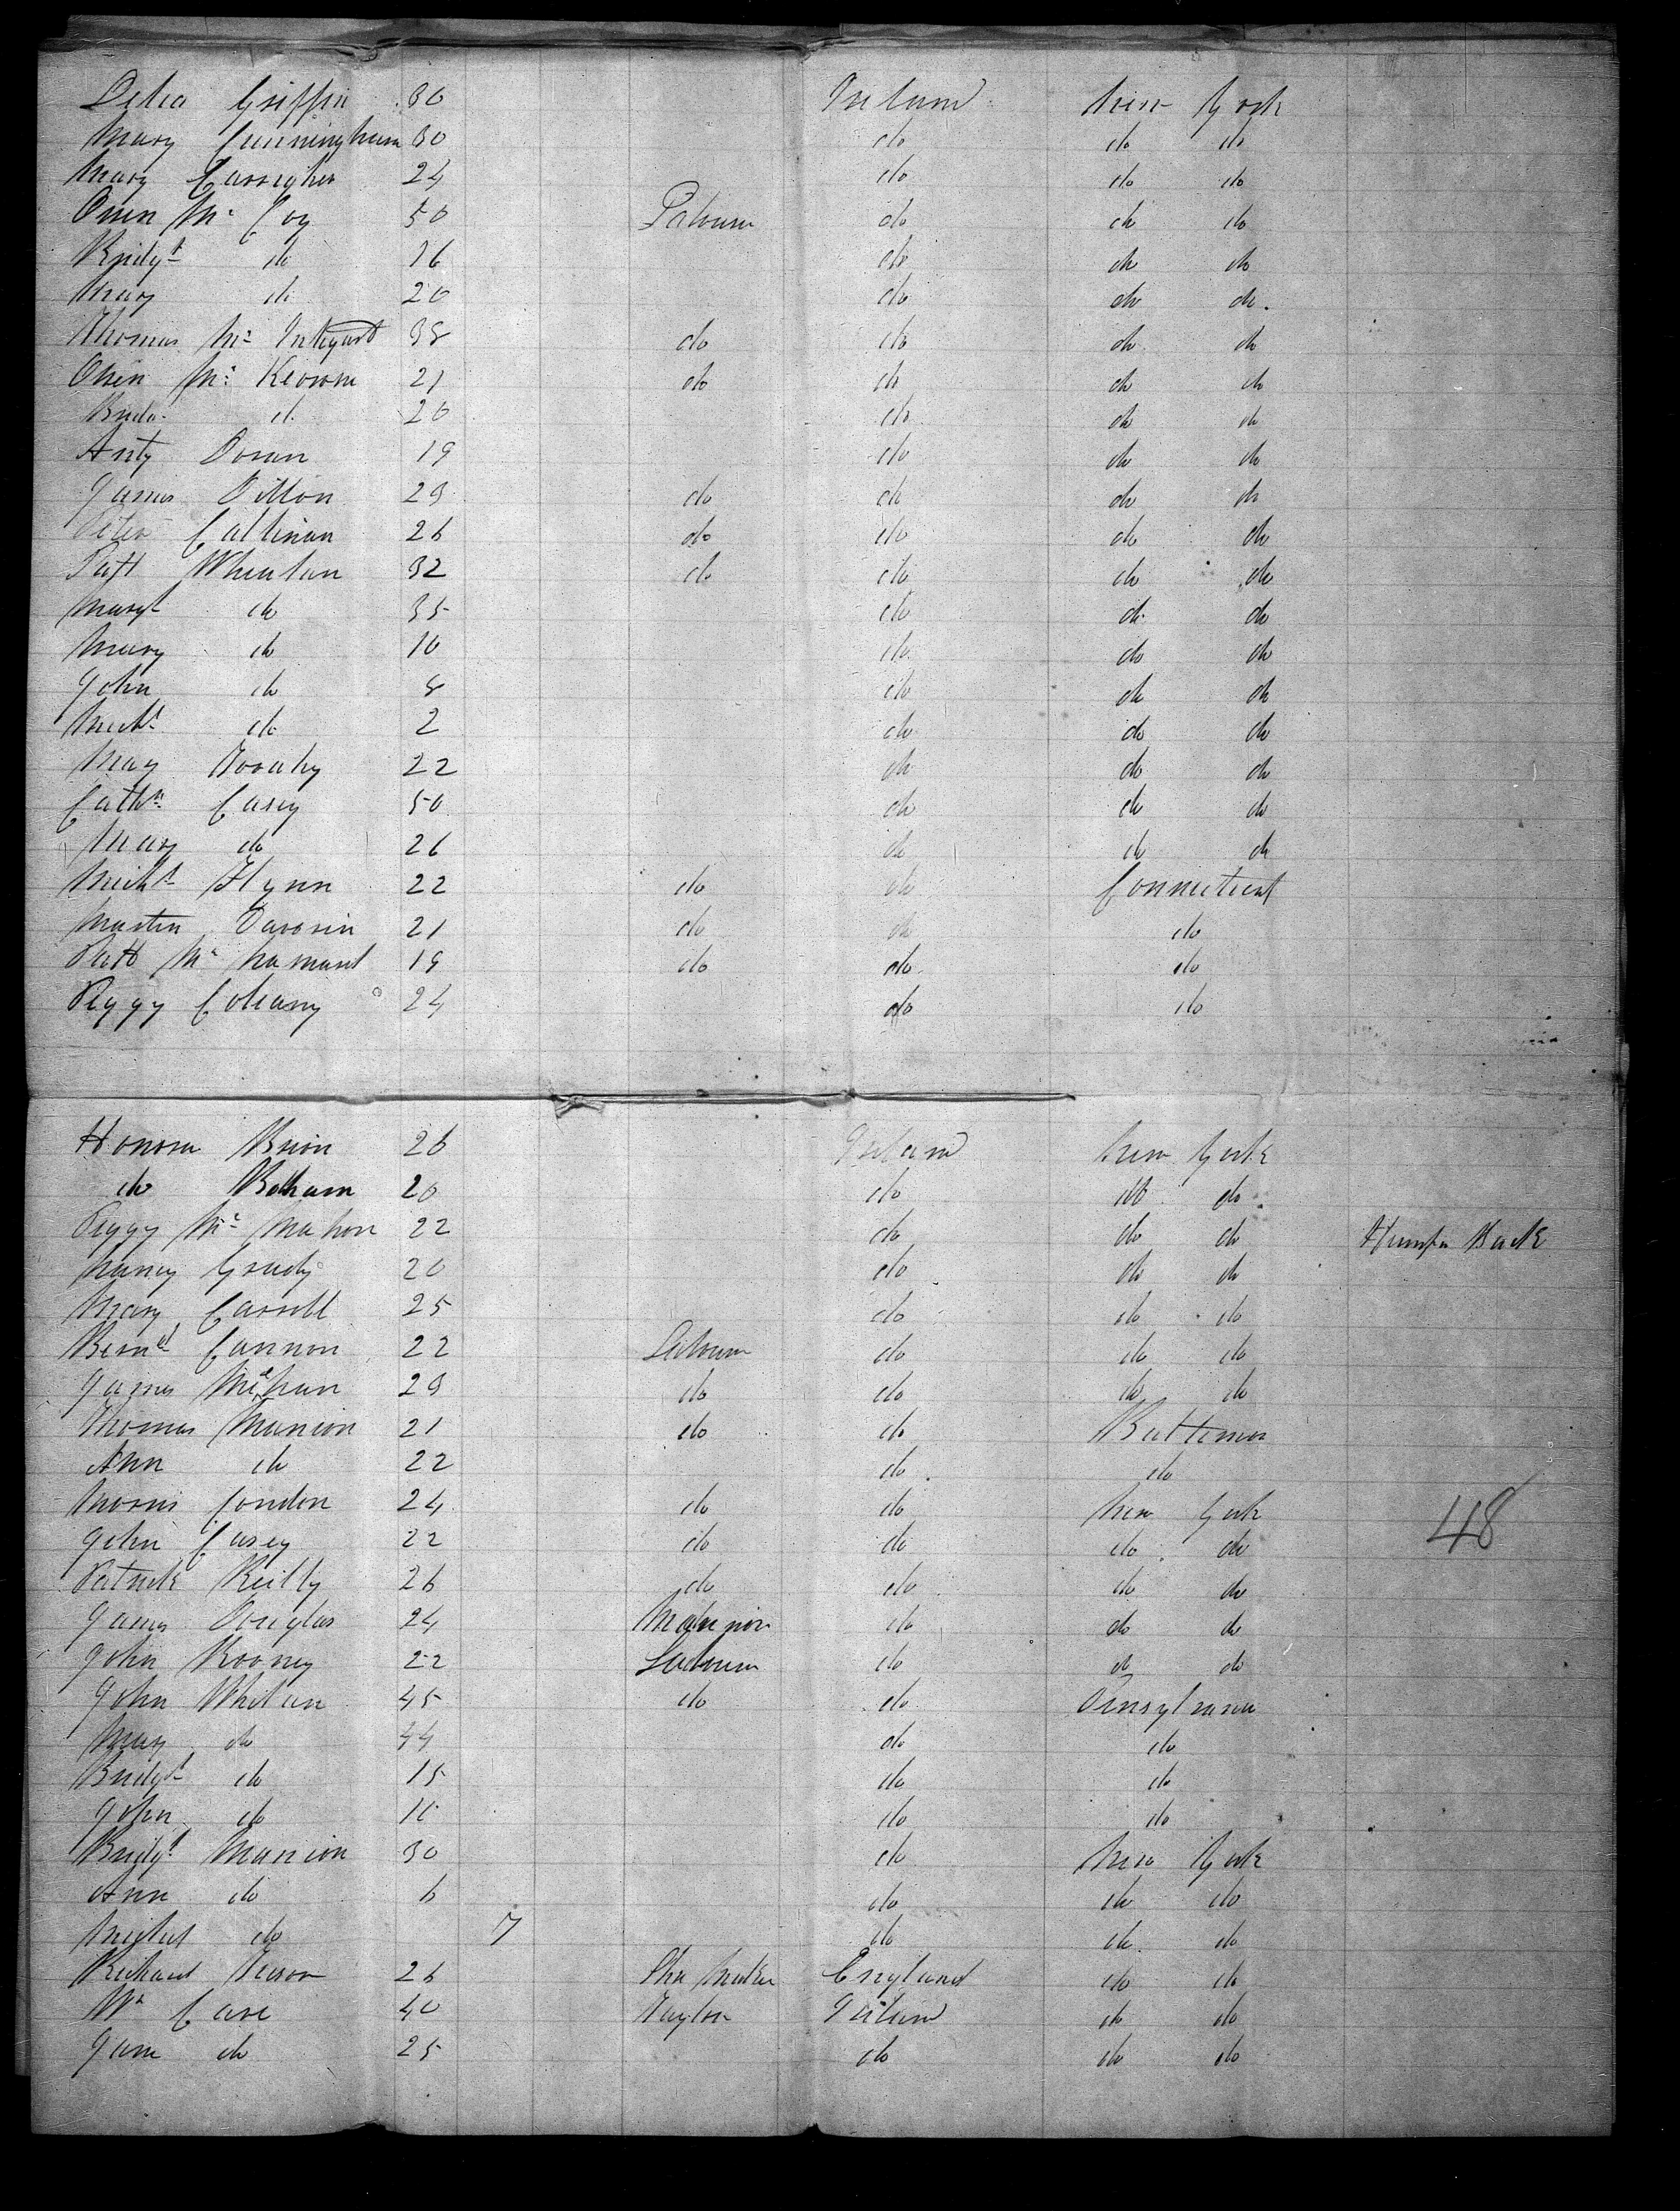 Delia Griffin 30 Ireland New York
Mary Cunningham 30 do do do
Mary Carragher 24 do do do
Owen Mc Coy 50 Labourer do do do
Bridgt do 16 do do do
Mary do 20 do do do
Thomas Mc Integart 38 do do do do
Owen Mc Keown 21 do do do do
do 20 do do do
Anty Doran 19 do do do
James Dillon 29 do do do do
Peter Callinan 26 do do do do
Patt Whealan 32 do do do do
Margt do 35 do do do
Mary do 10 do do do
John do 8 do do do
Michl do 2 do do do
Mary 22 do do do
Cathn Casey 50 do do do
Mary do 26 do do do
Michl Flynn 22 do do Connecticut
Martin 21 do do do
Patt Mc Namara 19 do do do
Peggy 24 do do
Honora Brion 26 Ireland New York
do 20 do do do
Peggy Mc Mahon 22 do do do Hump Back
Nancy Grady 20 do do do
Mary Carroll 25 do do do
Bernd Cannon 22 Labourer do do do
James 29 do do do do
Thomas Manion 21 do do Baltimore
Ann do 22 do do
Morris Condon 24 do do New York
John Casey 22 do do do do
48
Patrick Reilly 26 do do do do
James Douglas 24 do do do
John Rooney 22 Labourer do do do
John Whelan 45 do do Pensylvania
Mary do 44 do do
Bridgt do 15 do do
John do do do
Bridgt Manion 30 do New York
Ann do 6 do do do
Michal do 7 do do do
Richard 26 Shoe Maker England do do
Wm Case 40 Taylor Ireland do do
Jane do 25 do do do